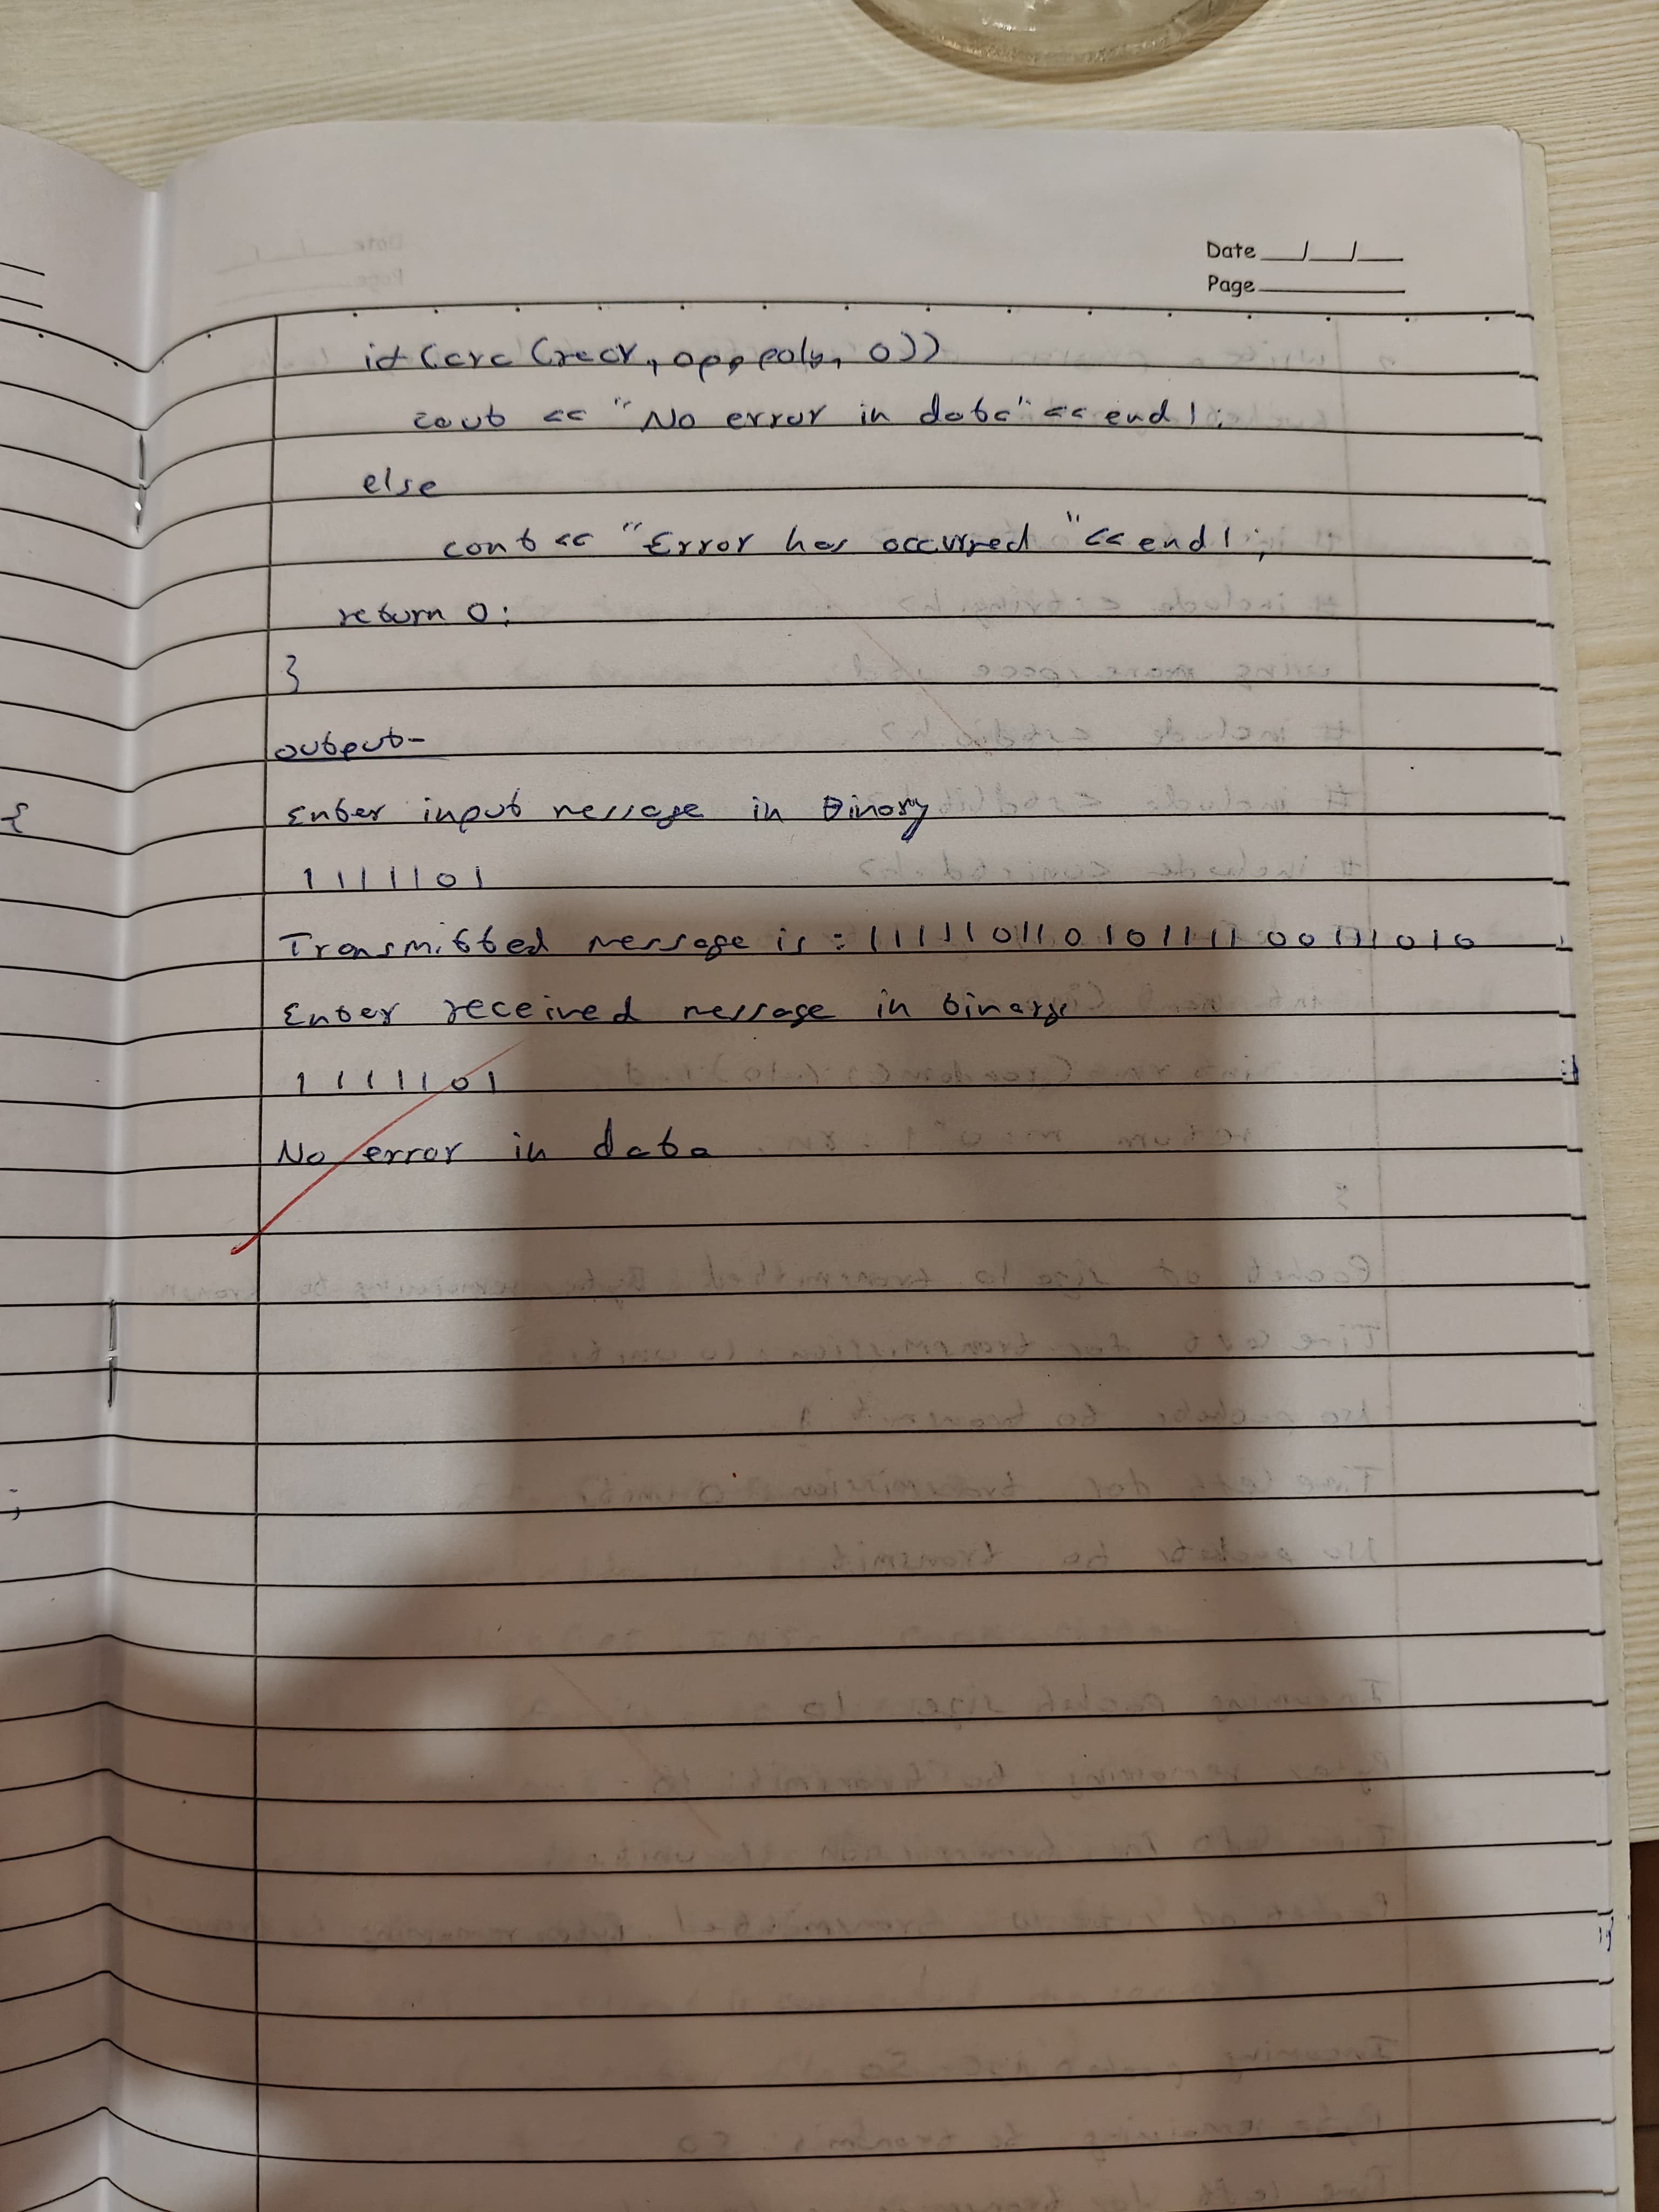 Date __/__/__
Page ______
if (crc (recv, opp, poly, 0))
cout << "No error in data" << endl;
else
cout << "Error has occurred" << endl;
return 0;
}
output-
Enter input message in Binary
1111101
Transmitted message is : 11111011010111100111010
Enter received message in binary
1111101
No error in data
{
;